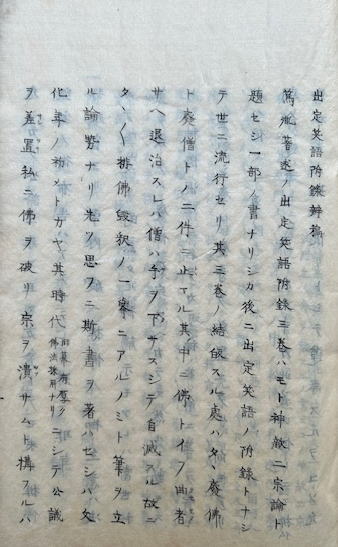 出定笑語附録辨摘
篤胤著述ノ出定笑語附録三巻ハモト神敵二宗論ト
題セシ一部ノ書ナリシカ後ニ出定笑語ノ附録トナシ
テ世ニ流行セリ其三巻ノ結皈スル處ハタヽ廃佛
ト廃僧トノ二件ニ止マル其中ニ佛トイフ曲者
サヘ退治スレハ僧ハ手ヲ下サスシテ自滅スル故ニ
タヽ排佛毀釈ノ一案ニアルノミト筆ヲ立
ル論勢ナリ先ツ思フニ斯書ヲ著ハセシハ文
化年ノ初メトカヤ其時代旧幕府厚ク佛法採用ナリニシテ公議
ヲ差置私ニ佛ヲ破リ宗ヲ潰サムト構フルハ